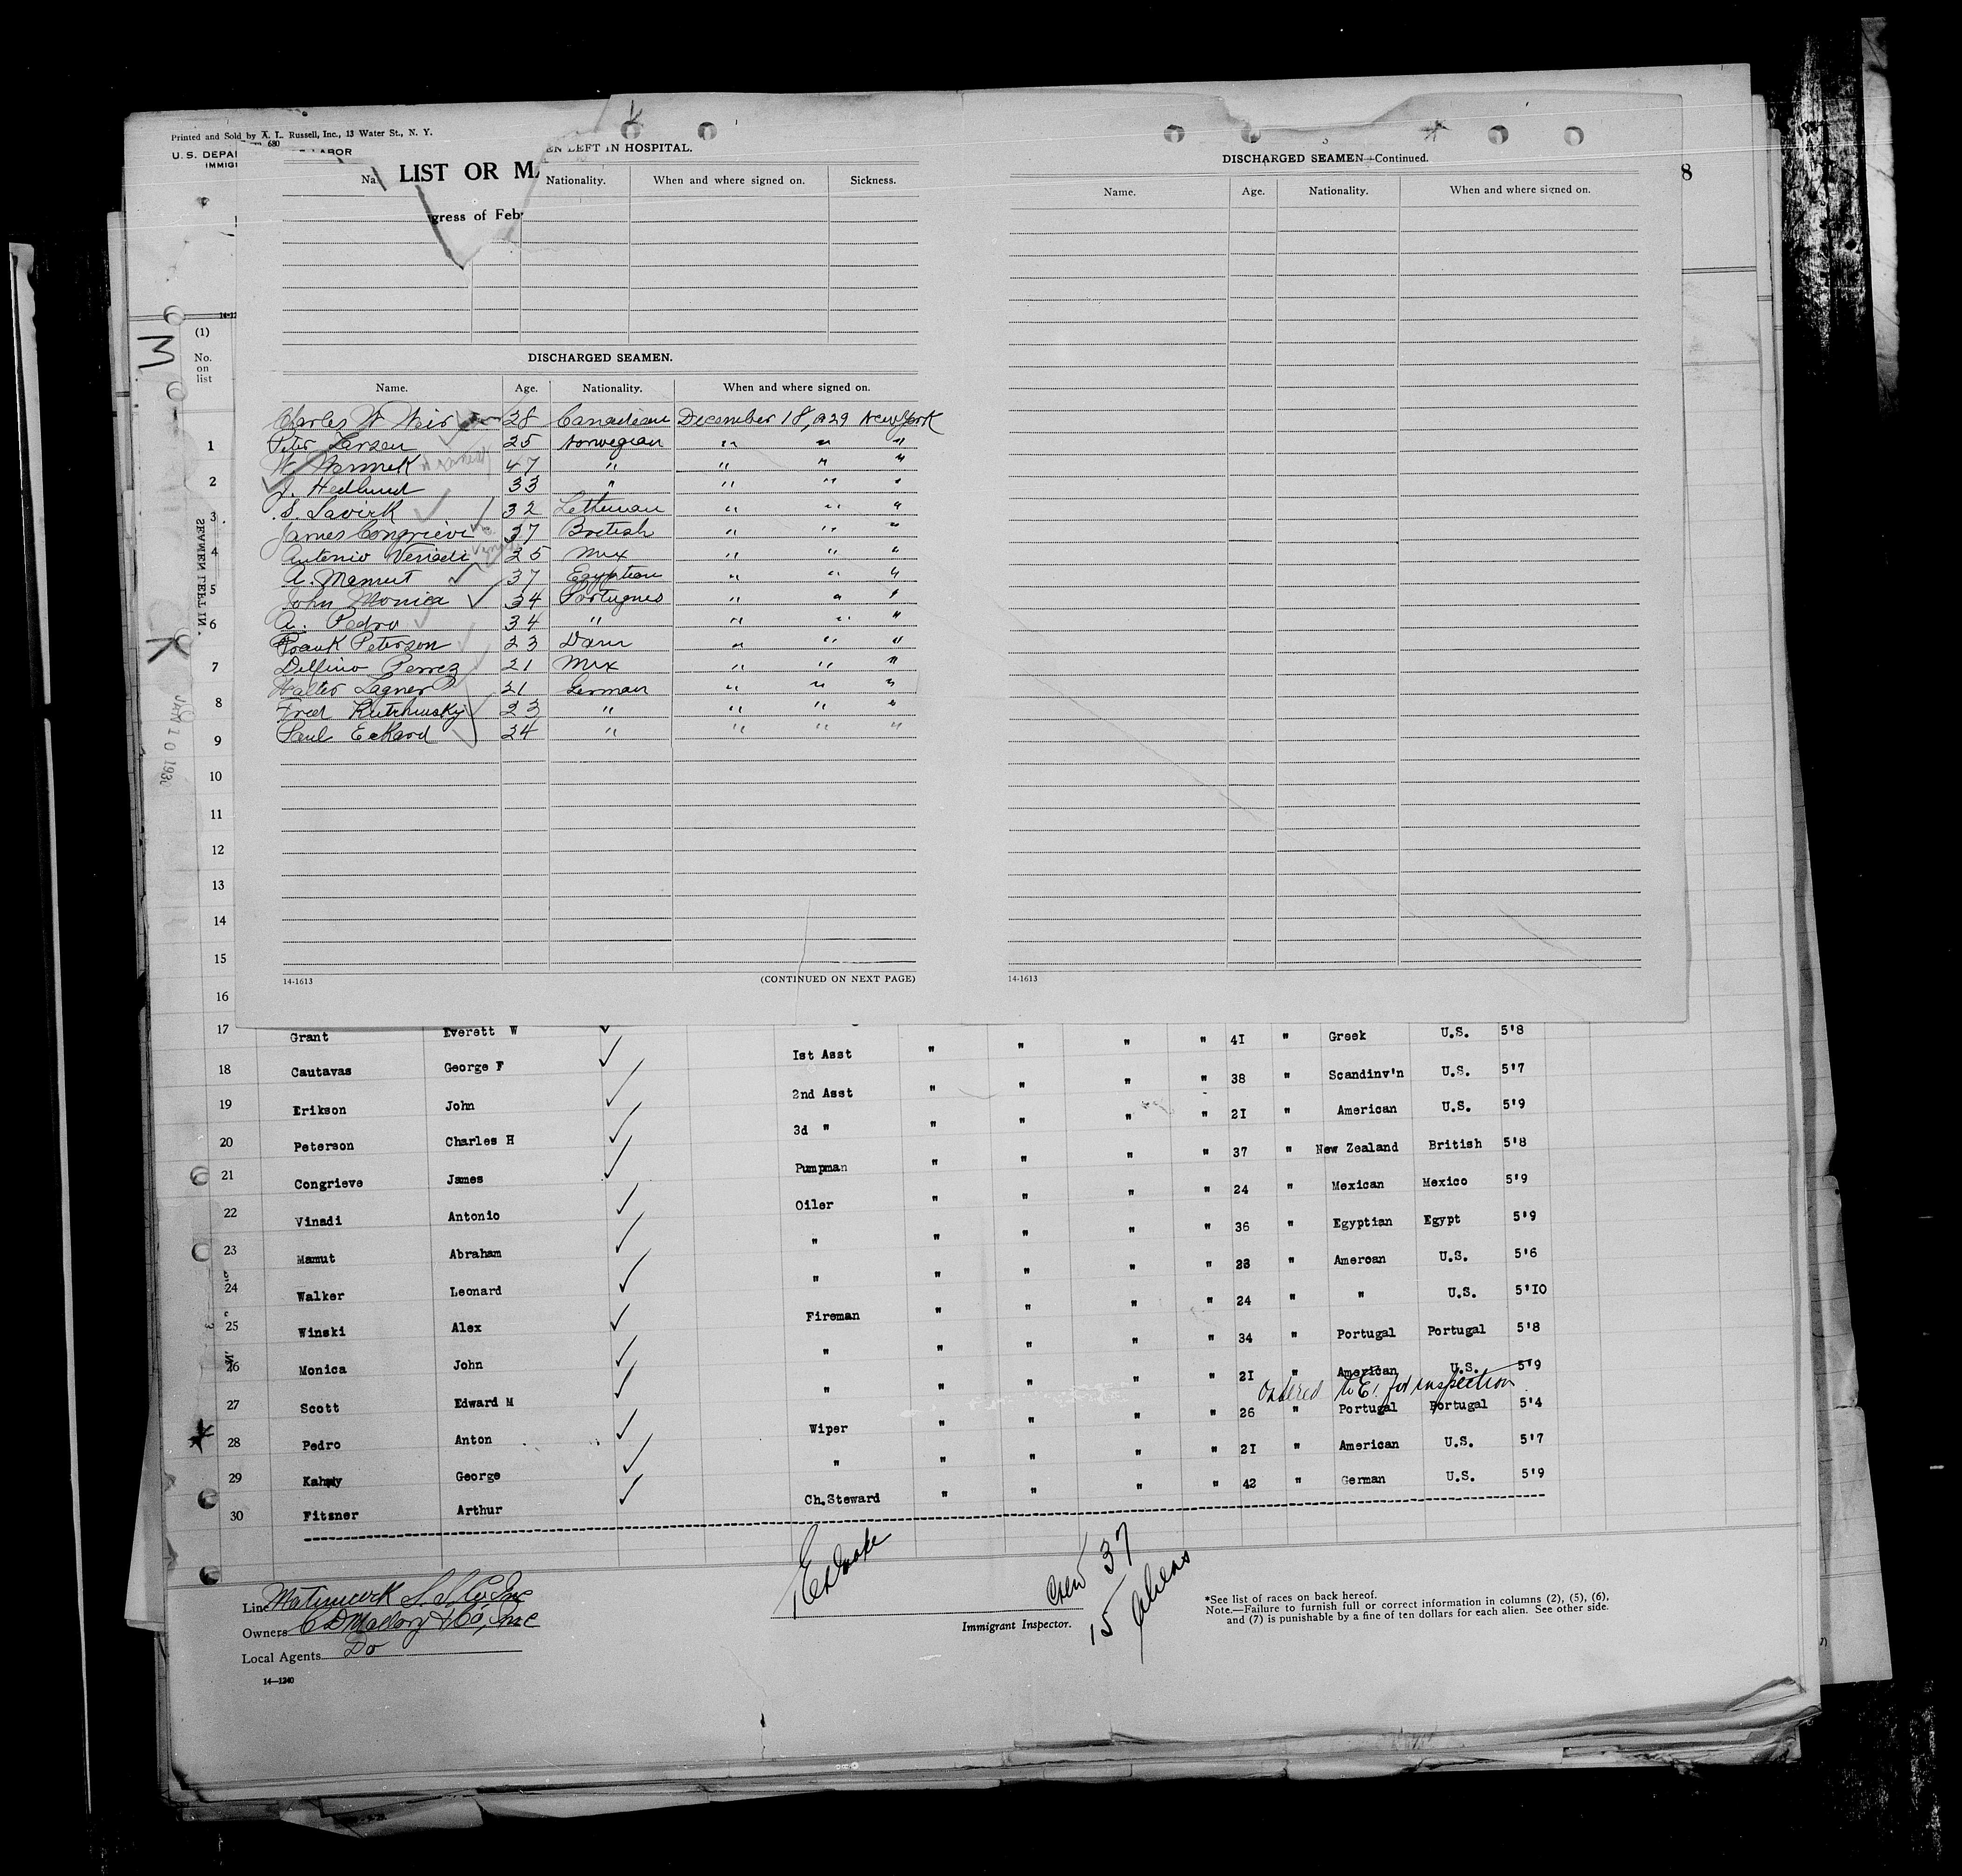 Printed and Sold by A. L. Russell, Inc., 13 Water St., N. Y.
680
U. S. DEPA LABOR
IMMIG
LIST OR MA
EN LEFT IN HOSPITAL.
Na Nationality. When and where signed on. Sickness.
gress of Feb
DISCHARGED SEAMEN.
Name. Age. Nationality. When and where signed on.
Charles W Weir 28 Canadian December 18, 1929 New York
Peter Larsen 25 Norwegian " " "
W. Warmek 47 " " " "
J. Hedlund 33 " " " "
S. Savick 32 " " "
James Congrieve 37 British " " "
Antonio Veriadi 25 Mex " " "
A. Mamut 37 Egyptian " " "
John Monica 34 Portugues " " "
A. Pedro 34 " " " "
Frank Peterson 23 Dann " " "
Delfino Perrez 21 Mex " " "
Walter Lagner 21 German " " "
Fred Rutchusky 23 " " " "
Paul Eckard 24 " " " "
14-1613 (CONTINUED ON NEXT PAGE)
DISCHARGED SEAMEN—Continued.
Name. Age. Nationality. When and where signed on.
14-1613
8
(1)
No. on list
SEAMEN LEFT IN
JAN 10 1930
1
2
3
4
5
6
7
8
9
10
11
12
13
14
15
16
17 Grant Everett W
18 Cautavas George F 1st Asst " " " " 41 " Greek U.S. 5'8
19 Erikson John 2nd Asst " " " " 38 " Scandinv'n U.S. 5'7
20 Peterson Charles H 3d " " " " " 21 " American U.S. 5'9
21 Congrieve James Pumpman " " " " 37 " New Zealand British 5'8
22 Vinadi Antonio Oiler " " " " 24 " Mexican Mexico 5'9
23 Mamut Abraham " " " " " 36 " Egyptian Egypt 5'9
24 Walker Leonard " " " " " 23 " Amercan U.S. 5'6
25 Winski Alex Fireman " " " " 24 " " U.S. 5'10
26 Monica John " " " " " 34 " Portugal Portugal 5'8
27 Scott Edward M " " " " " 21 " American U.S. 5'9
Ordered to E.I. for inspection
28 Pedro Anton Wiper " " " " 26 " Portugal Portugal 5'4
29 Kahmy George " " " " " 21 " American U.S. 5'7
30 Fitzner Arthur Ch.Steward " " " " 42 " German U.S. 5'9
Crew 37
15 Aliens
Line Matinicock S.S. Co. Inc
Owners C D Mallory & Co, Inc
Local Agents Do
14—1240
Immigrant Inspector.
*See list of races on back hereof.
Note.—Failure to furnish full or correct information in columns (2), (5), (6),
and (7) is punishable by a fine of ten dollars for each alien. See other side.